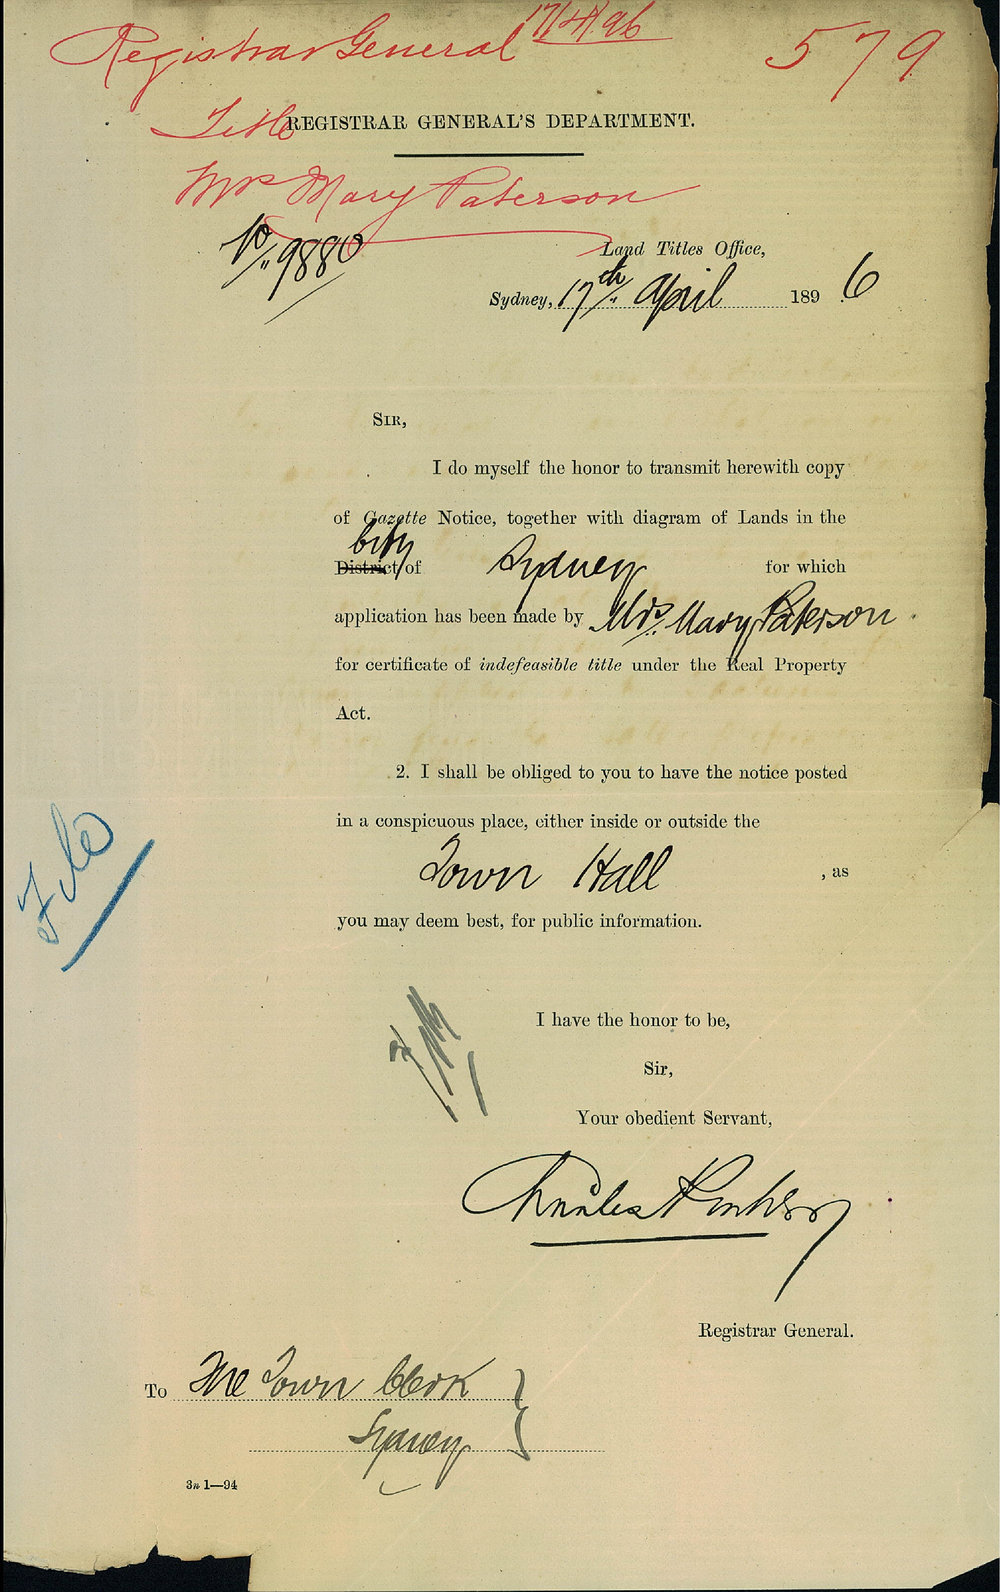 17/4/96
Registrar General
579
Title
REGISTRAR GENERAL'S DEPARTMENT.
Mrs Mary Paterson
No 9880
Land Titles Office,
Sydney, 17th April 1896
SIR,
I do myself the honor to transmit herewith copy
of Gazette Notice, together with diagram of Lands in the
City
District of Sydney for which
application has been made by Mrs. Mary Paterson
for certificate of indefeasible title under the Real Property
Act.
2. I shall be obliged to you to have the notice posted
in a conspicuous place, either inside or outside the
File
Town Hall , as
you may deem best, for public information.
I have the honor to be,
Sir,
Your obedient Servant,
Charles
Registrar General.
To The Town Clerk
Sydney
3n 1—94